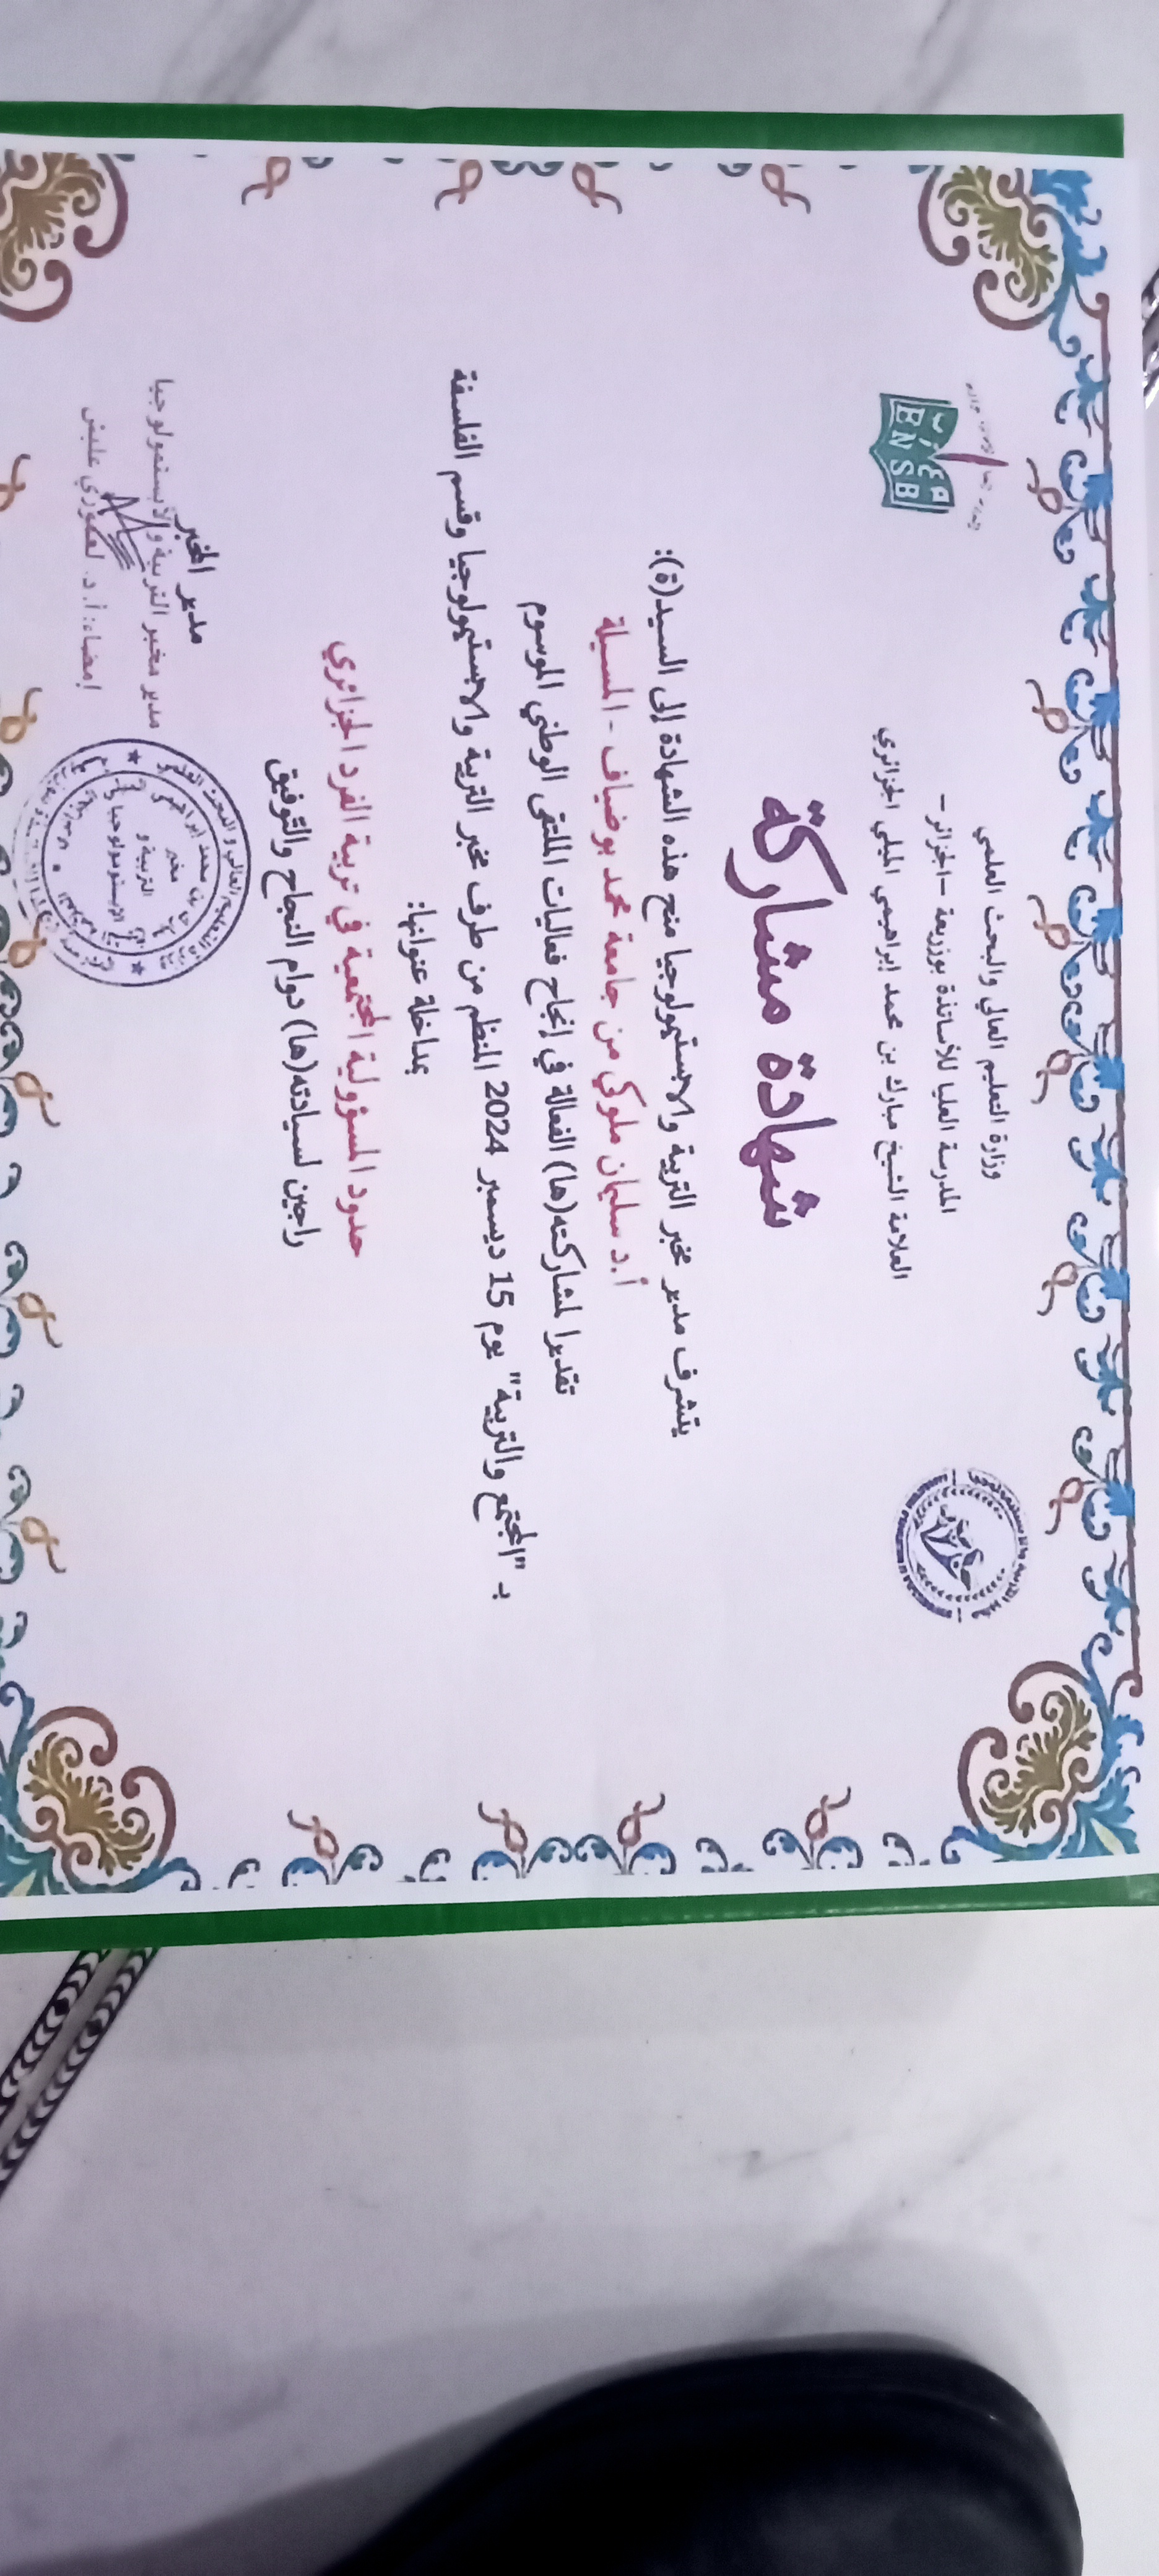 وزارة التعليم العالي والبحث العلمي
المدرسة العليا للأساتذة بوزريعة -الجزائر –
العلامة الشيخ مبارك بن محمد إبراهيمي الميلي الجزائري
ENSB
شهادة مشاركة
يتشرف مدير مخبر التربية والابستمولوجيا منح هذه الشهادة إلى السيد(ة):
أ.د سليمان ملوكي من جامعة محمد بوضياف - المسيلة
تقديرا لمشاركته(ها) الفعالة في إنجاح فعاليات الملتقى الوطني الموسوم
بـ "المجتمع والتربية" يوم 15 ديسمبر 2024 المنظم من طرف مخبر التربية والابستمولوجيا وقسم الفلسفة
بمداخلة عنوانها:
حدود المسؤولية المجتمعية في تربية الفرد الجزائري
راجين لسيادته(ها) دوام النجاح والتوفيق
مدير المخبر
مدير مخبر التربية والابستمولوجيا
إمضاء: أ.د. لعموري عليش
مخبر
التربية و
الابستمولوجيا